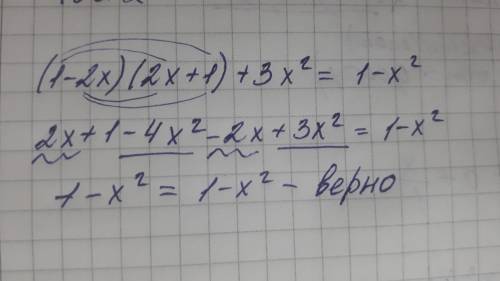 (1-2x)(2x+1)+3x²= 1-x²
2x+1-4x²-2x+3x²=1-x²
1-x²= 1-x²- верно